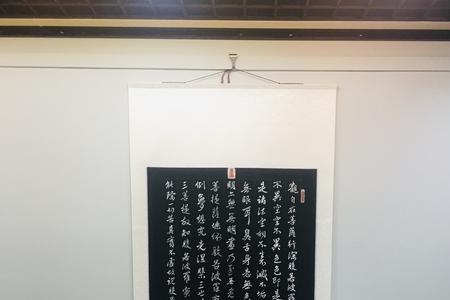 觀自在菩薩行深般若波
不異空空不異色色即是
是諸法空相不生不滅不垢
無眼耳鼻舌身意無色
明亦無無明盡乃至無老
菩提薩埵依般若波羅蜜
倒夢想究竟涅槃三世
三菩提故知般若波羅蜜
能除一切苦真實不虛故說般